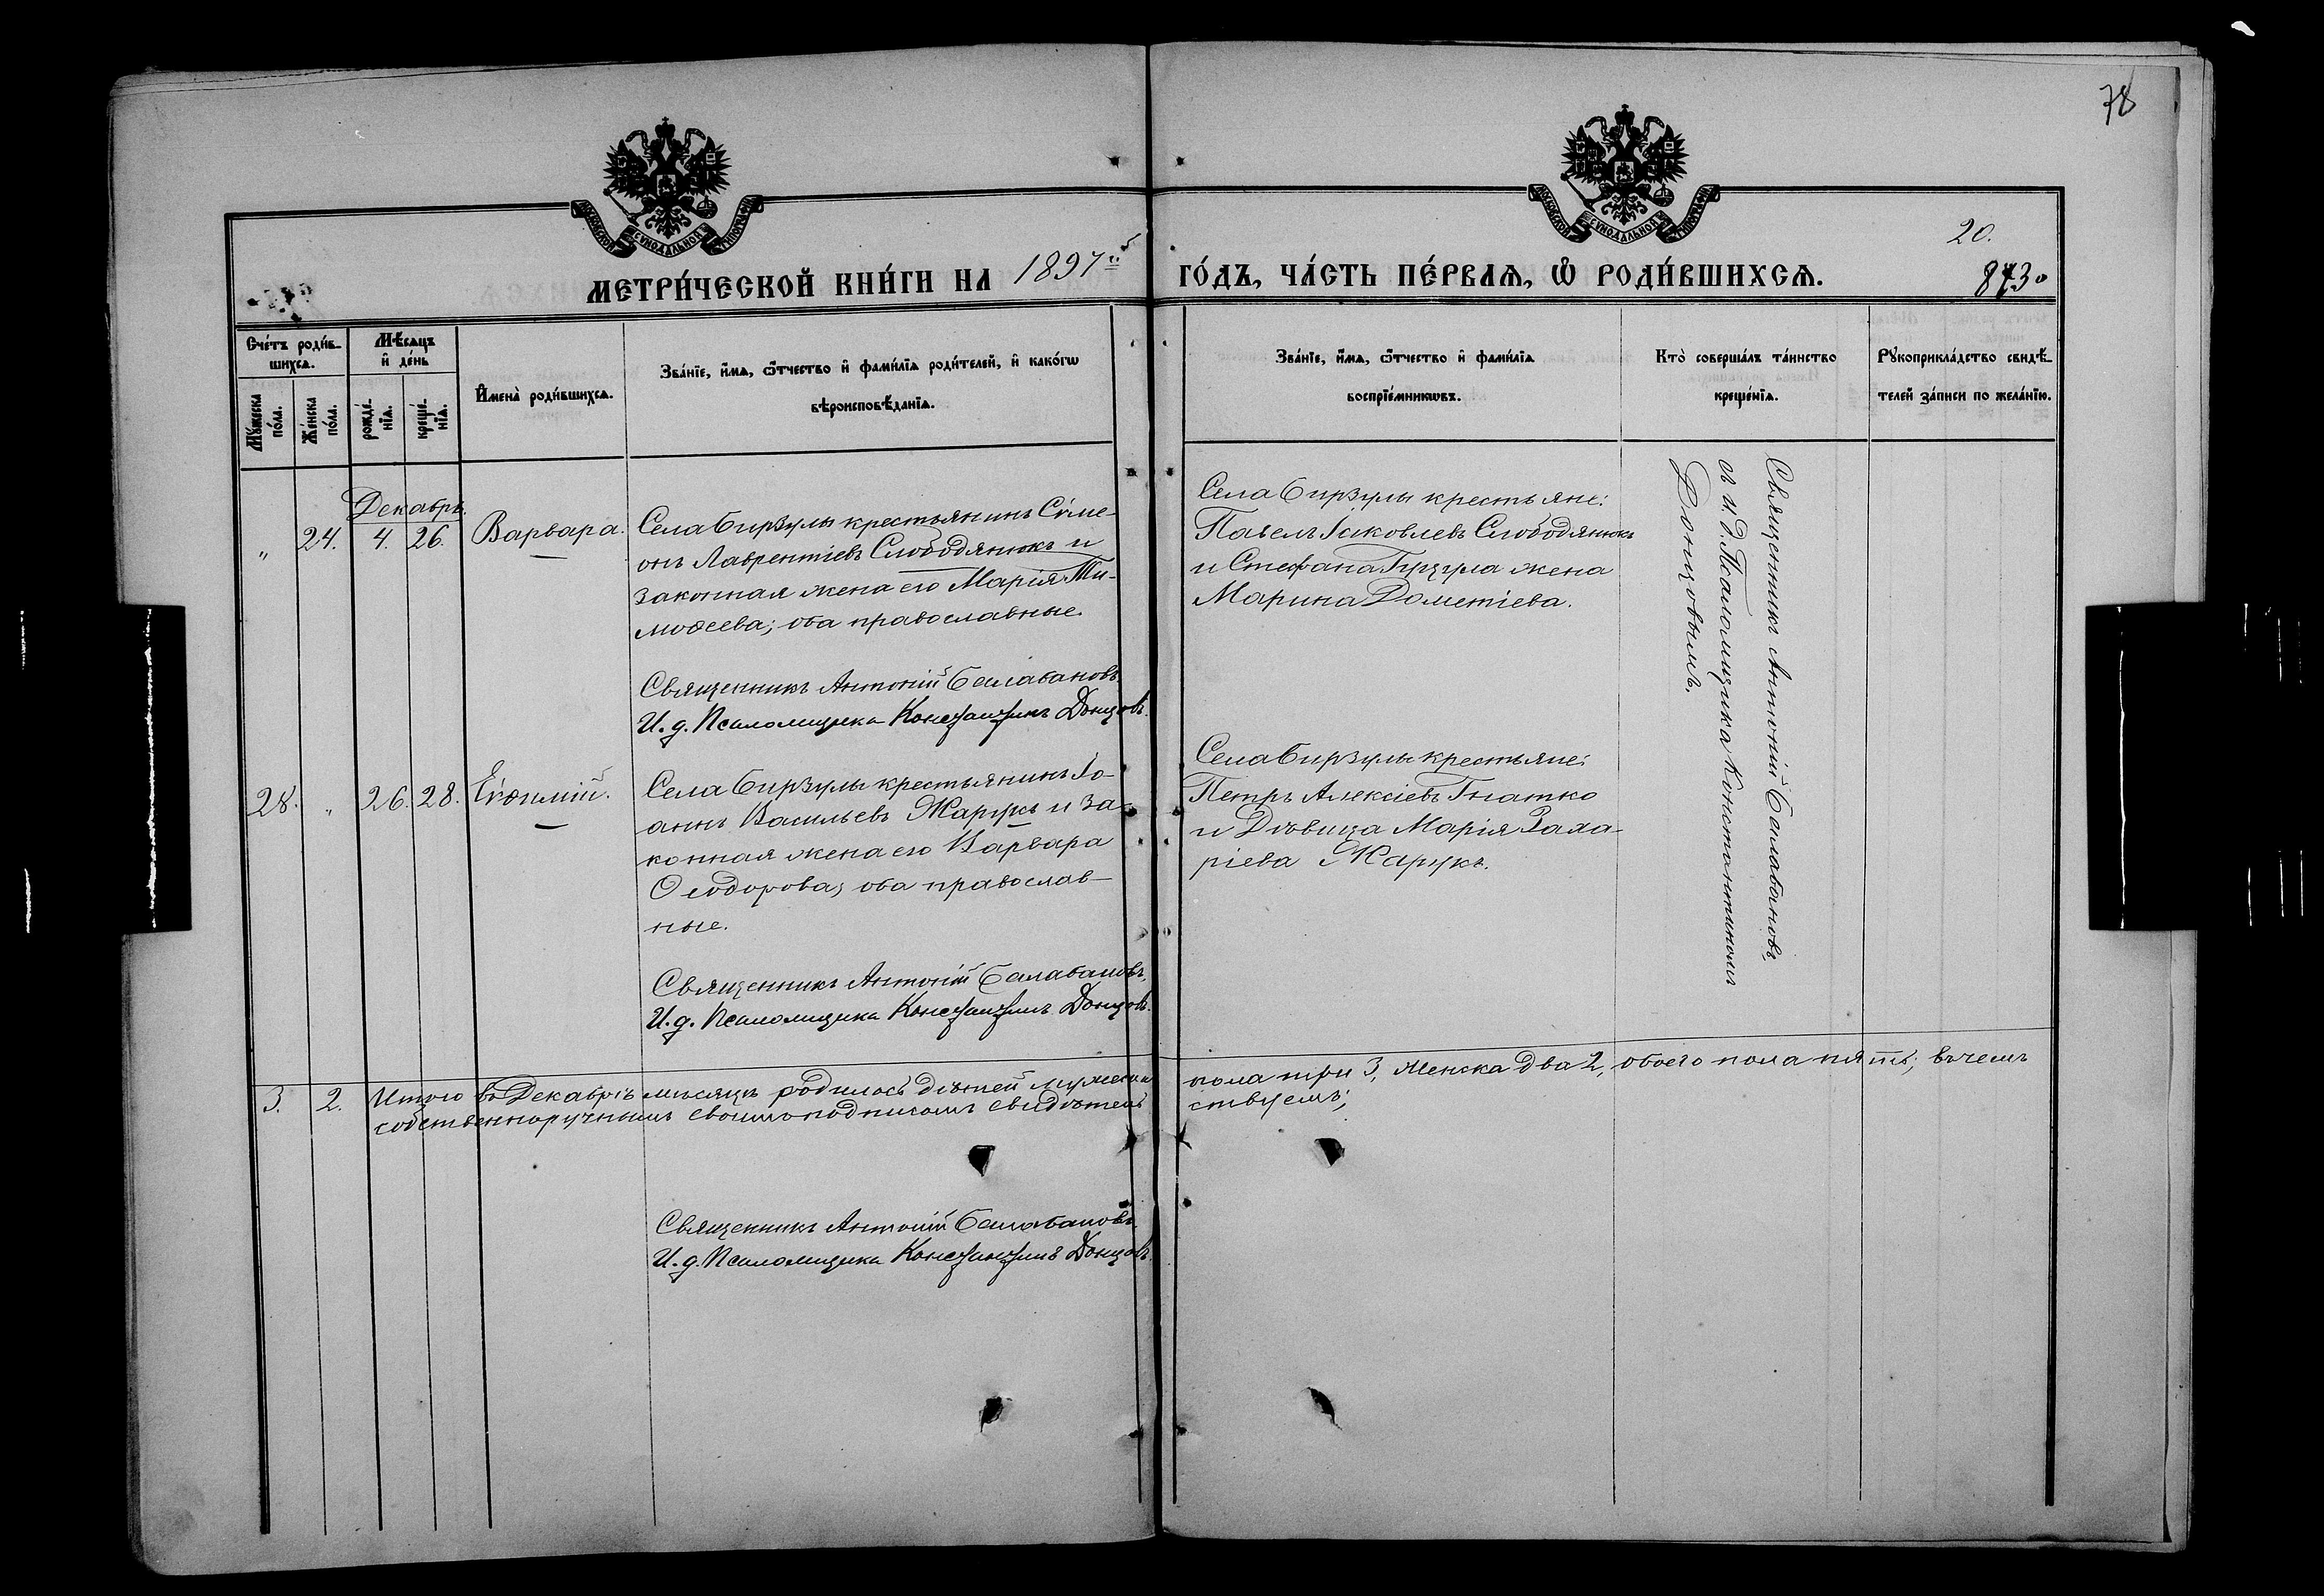 78
МОСКОВСКОЙ СѴНОДАЛЬНОЙ ТИПОГРАФІИ
МОСКОВСКОЙ СѴНОДАЛЬНОЙ ТИПОГРАФІИ
20.
МЕТРИ́ЧЕСКОЙ КНИ́ГИ НА 1897й ГО́ДЪ, ЧА́СТЬ ПЕ́РВАѦ, Ѡ҆ РОДИ́ВШИХСѦ.
Сче́тъ роди́в-
шихсѧ.
Мꙋ́жеска по́ла.
Же́нска по́ла.
Мѣ́сѧцъ
и҆ де́нь
рожде́-
нїѧ.
креще́-
нїѧ.
И҆мена̀ роди́вшихсѧ.
Зва́нїе, и҆́мѧ, ѻ҆́тчество и҆ фами́лїѧ роди́телей, и҆ како́гѡ
вѣроисповѣ́данїѧ.
Зва́нїе, и҆́мѧ, ѻ҆́тчество и҆ фами́лїѧ
воспрїе́мникѡвъ.
Кто̀ соверша́лъ та́инство
креще́нїѧ.
Рꙋкоприкла́дство свидѣ́-
телей за́писи по жела́нїю.
Декабрь.
„ 24. 4. 26. Варвара.
Села Бирзулы крестьянинъ Сѵме-
онъ Лаврентіевъ Слободянюкъ и
законная жена его Марія Ти-
моѳеева; оба православные.
Священникъ Антоній Балабановъ
И. д. Псаломщика Константинъ Донцовъ.
Села Бирзулы крестьяне:
Павелъ Іаковлевъ Слободянюкъ
и Стефана Гуцула жена
Марина Дометіева.
Священникъ Антоній Балабановъ,
съ И. Д. Псаломщика Константиномъ
Донцовымъ.
28. „ 26. 28. Евѳимій.
Села Бирзулы крестьянинъ Іо-
аннъ Васильевъ Жарукъ и за-
конная жена его Варвара
Ѳеодорова, оба православ-
ные.
Священникъ Антоній Балабановъ,
И. д. Псаломщика Константинъ Донцовъ.
Села Бирзулы крестьяне:
Петръ Алексіевъ Гнатко
и Дѣвица Марія Заха-
ріева Жарукъ.
3. 2. Итого въ Декабрѣ мѣсяцѣ родилось дѣтей мужеска пола три 3, женска два 2, обоего пола пять; въ чемъ
собственноручнымъ своимъ подписомъ свидѣтель ствуемъ;
Священникъ Антоній Балабановъ
И. д. Псаломщика Константинъ Донцовъ.